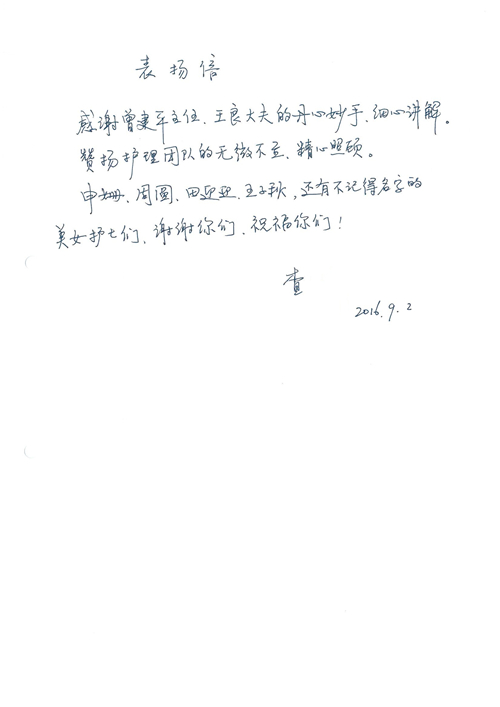 表扬信
感谢曾建平主任、王良大夫的丹心妙手、细心讲解。
赞扬护理团队的无微不至、精心照顾。
申姗、周圆、田亚亚、王子秋,还有不记得名字的
美女护士们、谢谢你们、祝福你们!
查
2016.9.2